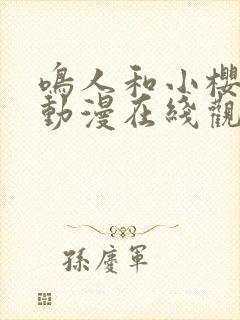 鳴人和小櫻
動漫在綫觀
孫慶軍